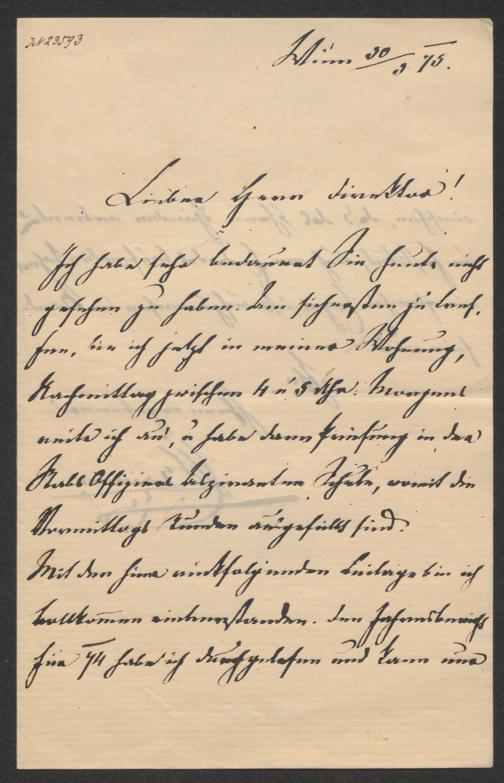 JN 23593
Wien 30/3 75.
Lieber Herr Direktor!
Ich habe sehr bedauert Sie heute nicht
gesehen zu haben. Am sichersten zu tref-
fen, bin ich jetzt in meiner Wohnung,
Nachmittag zwischen 4 u 5 Uhr: Morgens
reite ich aus, u habe dann Prüfung in der
Stabs Offiziers Aspiranten Schule, womit die
Vormittags Stunden ausgefüllt sind.
Mit den hier rückfolgenden Beilage bin ich
vollkommen einverstanden. Den Jahresbericht
für 74 habe ich durchgelesen und kann nur